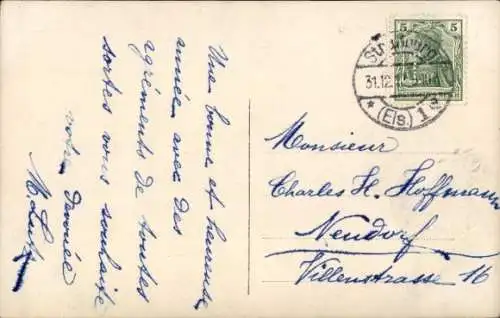 Une bonne et heureuse
année avec des
agréments de toutes
sortes vous souhaite
votre dévouée
5 5
31.12.
* (Els) 1
Monsieur
Charles H. Hoffmann
Neudorf
Villenstrasse 16